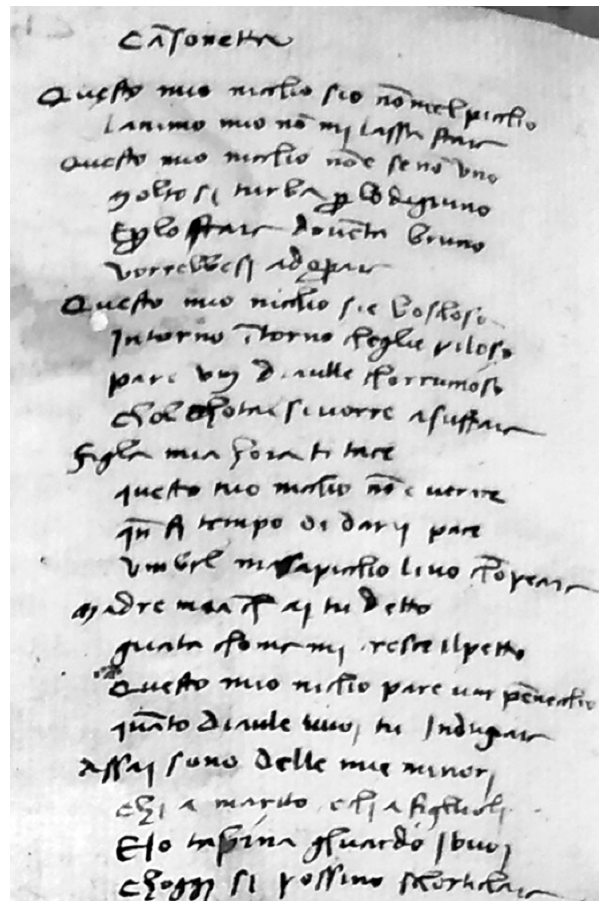 Cāsonetta
Questo mio nichio sio nōmel pichio
lanimo mio nō mj lassa star
Questo mio nichio nōe se nō vno
molto si turba p lo digiuno
E p lo star doventa bruno
vorrebbesi adopar
Questo mio nichio sie boschoso
Intorno ītorno cheglie piloso
pare un diaulle
chol si vorre asuffar
Figla mia hora ti tace
questo tuo nichio nō e verace
tempo di darij pace
vn bel
Madre mia ch aj tu detto
guata chome mj cresce il petto
Questo mio nichio pare un pēnechio
quāto diaule vuoj tu Indugiar
Assaj sono delle mie minorj
chi a marito chi a figliolj
E Io tapina ghuardo
choggi si possino schortichar